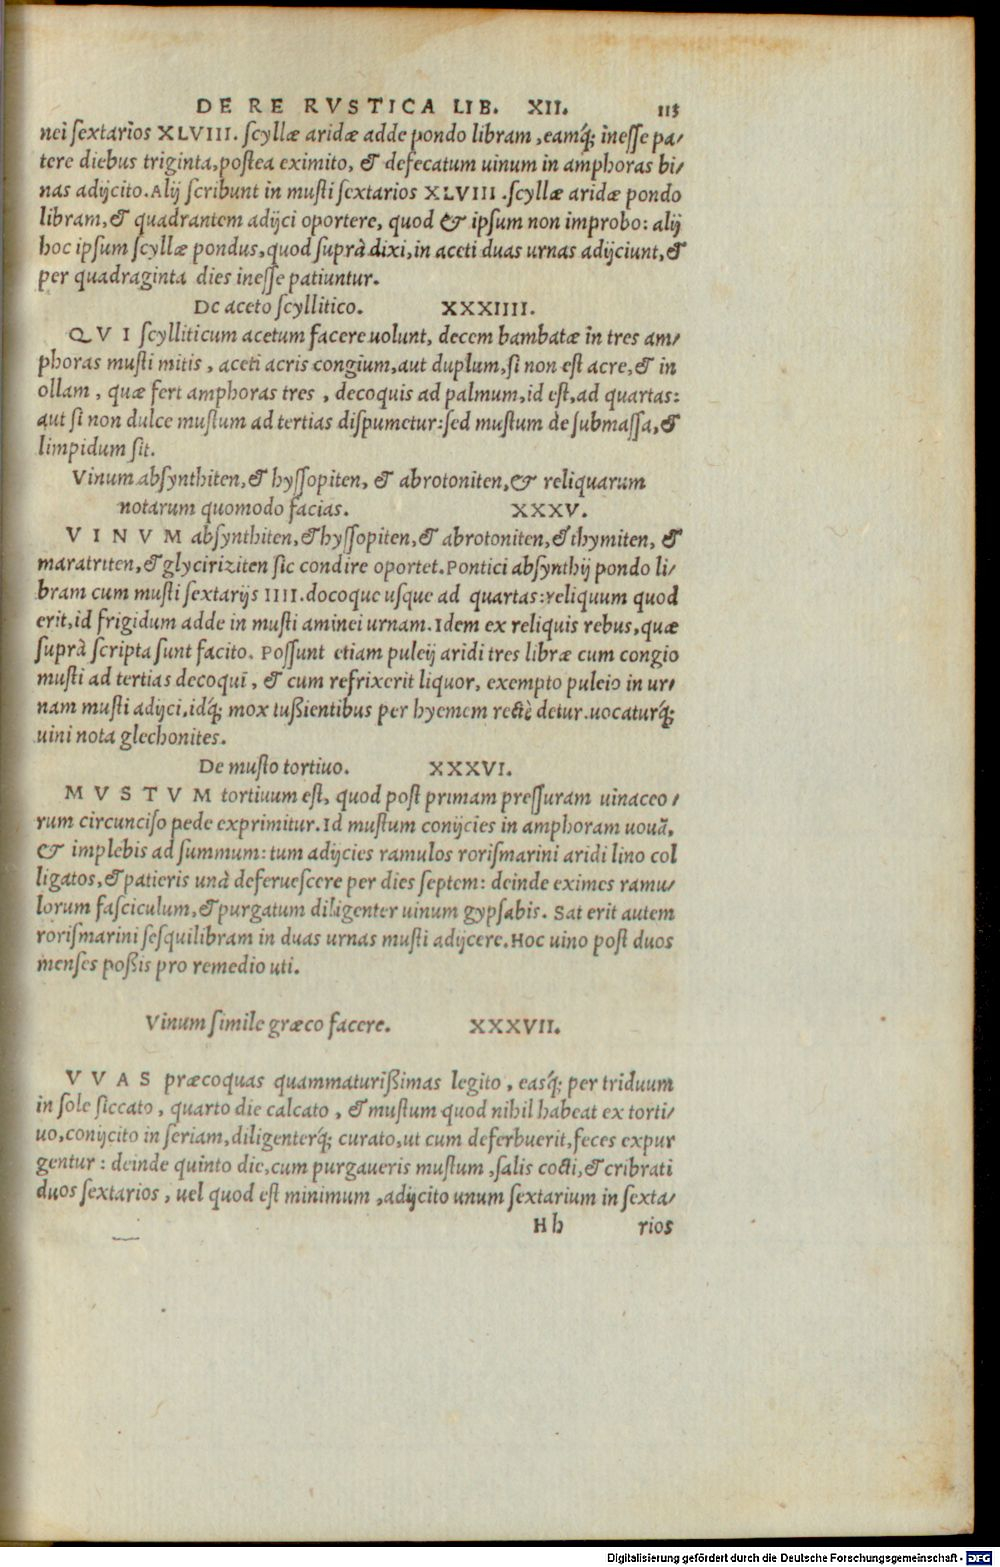 DE RE RVSTICA LIB. XII. 113
nei ſextarios XLVIII. ſcyllæ aridæ adde pondo libram, eamq́; ineſſe pa/
tere diebus triginta, poſtea eximito, & defecatum uinum in amphoras bi/
nas adijcito. Alij ſcribunt in muſti ſextarios XLVIII. ſcyllæ aridæ pondo
libram, & quadrantem adijci oportere, quod & ipſum non improbo: alij
hoc ipſum ſcyllæ pondus, quod ſuprà dixi, in aceti duas urnas adijciunt, &
per quadraginta dies ineſſe patiuntur.
De aceto ſcyllitico. XXXIIII.
QVI ſcylliticum acetum facere uolunt, decem bambatæ in tres am/
phoras muſti mitis, aceti acris congium, aut duplum, ſi non eſt acre, & in
ollam, quæ fert amphoras tres, decoquis ad palmum, id eſt, ad quartas:
aut ſi non dulce muſtum ad tertias diſpumetur: ſed muſtum de ſubmaſſa, &
limpidum ſit.
Vinum abſynthiten, & hyſſopiten, & abrotoniten, & reliquarum
notarum quomodo facias. XXXV.
VINVM abſynthiten, & hyſſopiten, & abrotoniten, & thymiten, &
maratriten, & glyciriziten ſic condire oportet. Pontici abſynthij pondo li/
bram cum muſti ſextarijs IIII. docoque uſque ad quartas: reliquum quod
erit, id frigidum adde in muſti aminei urnam. Idem ex reliquis rebus, quæ
ſuprà ſcripta ſunt facito. Poſſunt etiam puleij aridi tres libræ cum congio
muſti ad tertias decoqui, & cum refrixerit liquor, exempto puleio in ur/
nam muſti adijci, idq́; mox tußientibus per hyemem rectè detur. uocaturq́;
uini nota glechonites.
De muſto tortiuo. XXXVI.
MVSTVM tortiuum eſt, quod poſt primam preſſuram uinaceo/
rum circunciſo pede exprimitur. Id muſtum conijcies in amphoram nouã,
& implebis ad ſummum: tum adijcies ramulos roriſmarini aridi lino col
ligatos, & patieris unà deferueſcere per dies ſeptem: deinde eximes ramu/
lorum faſciculum, & purgatum diligenter uinum gypſabis. Sat erit autem
roriſmarini ſeſquilibram in duas urnas muſti adijcere. Hoc uino poſt duos
menſes poßis pro remedio uti.
Vinum ſimile græco facere. XXXVII.
VVAS præcoquas quammaturißimas legito, easq́; per triduum
in ſole ſiccato, quarto die calcato, & muſtum quod nihil habeat ex torti/
uo, conijcito in ſeriam, diligenterq́; curato, ut cum deferbuerit, feces expur
gentur: deinde quinto die, cum purgaueris muſtum, ſalis cocti, & cribrati
duos ſextarios, uel quod eſt minimum, adijcito unum ſextarium in ſexta/
Hh rios
Digitalisierung gefördert durch die Deutsche Forschungsgemeinschaft - DFG